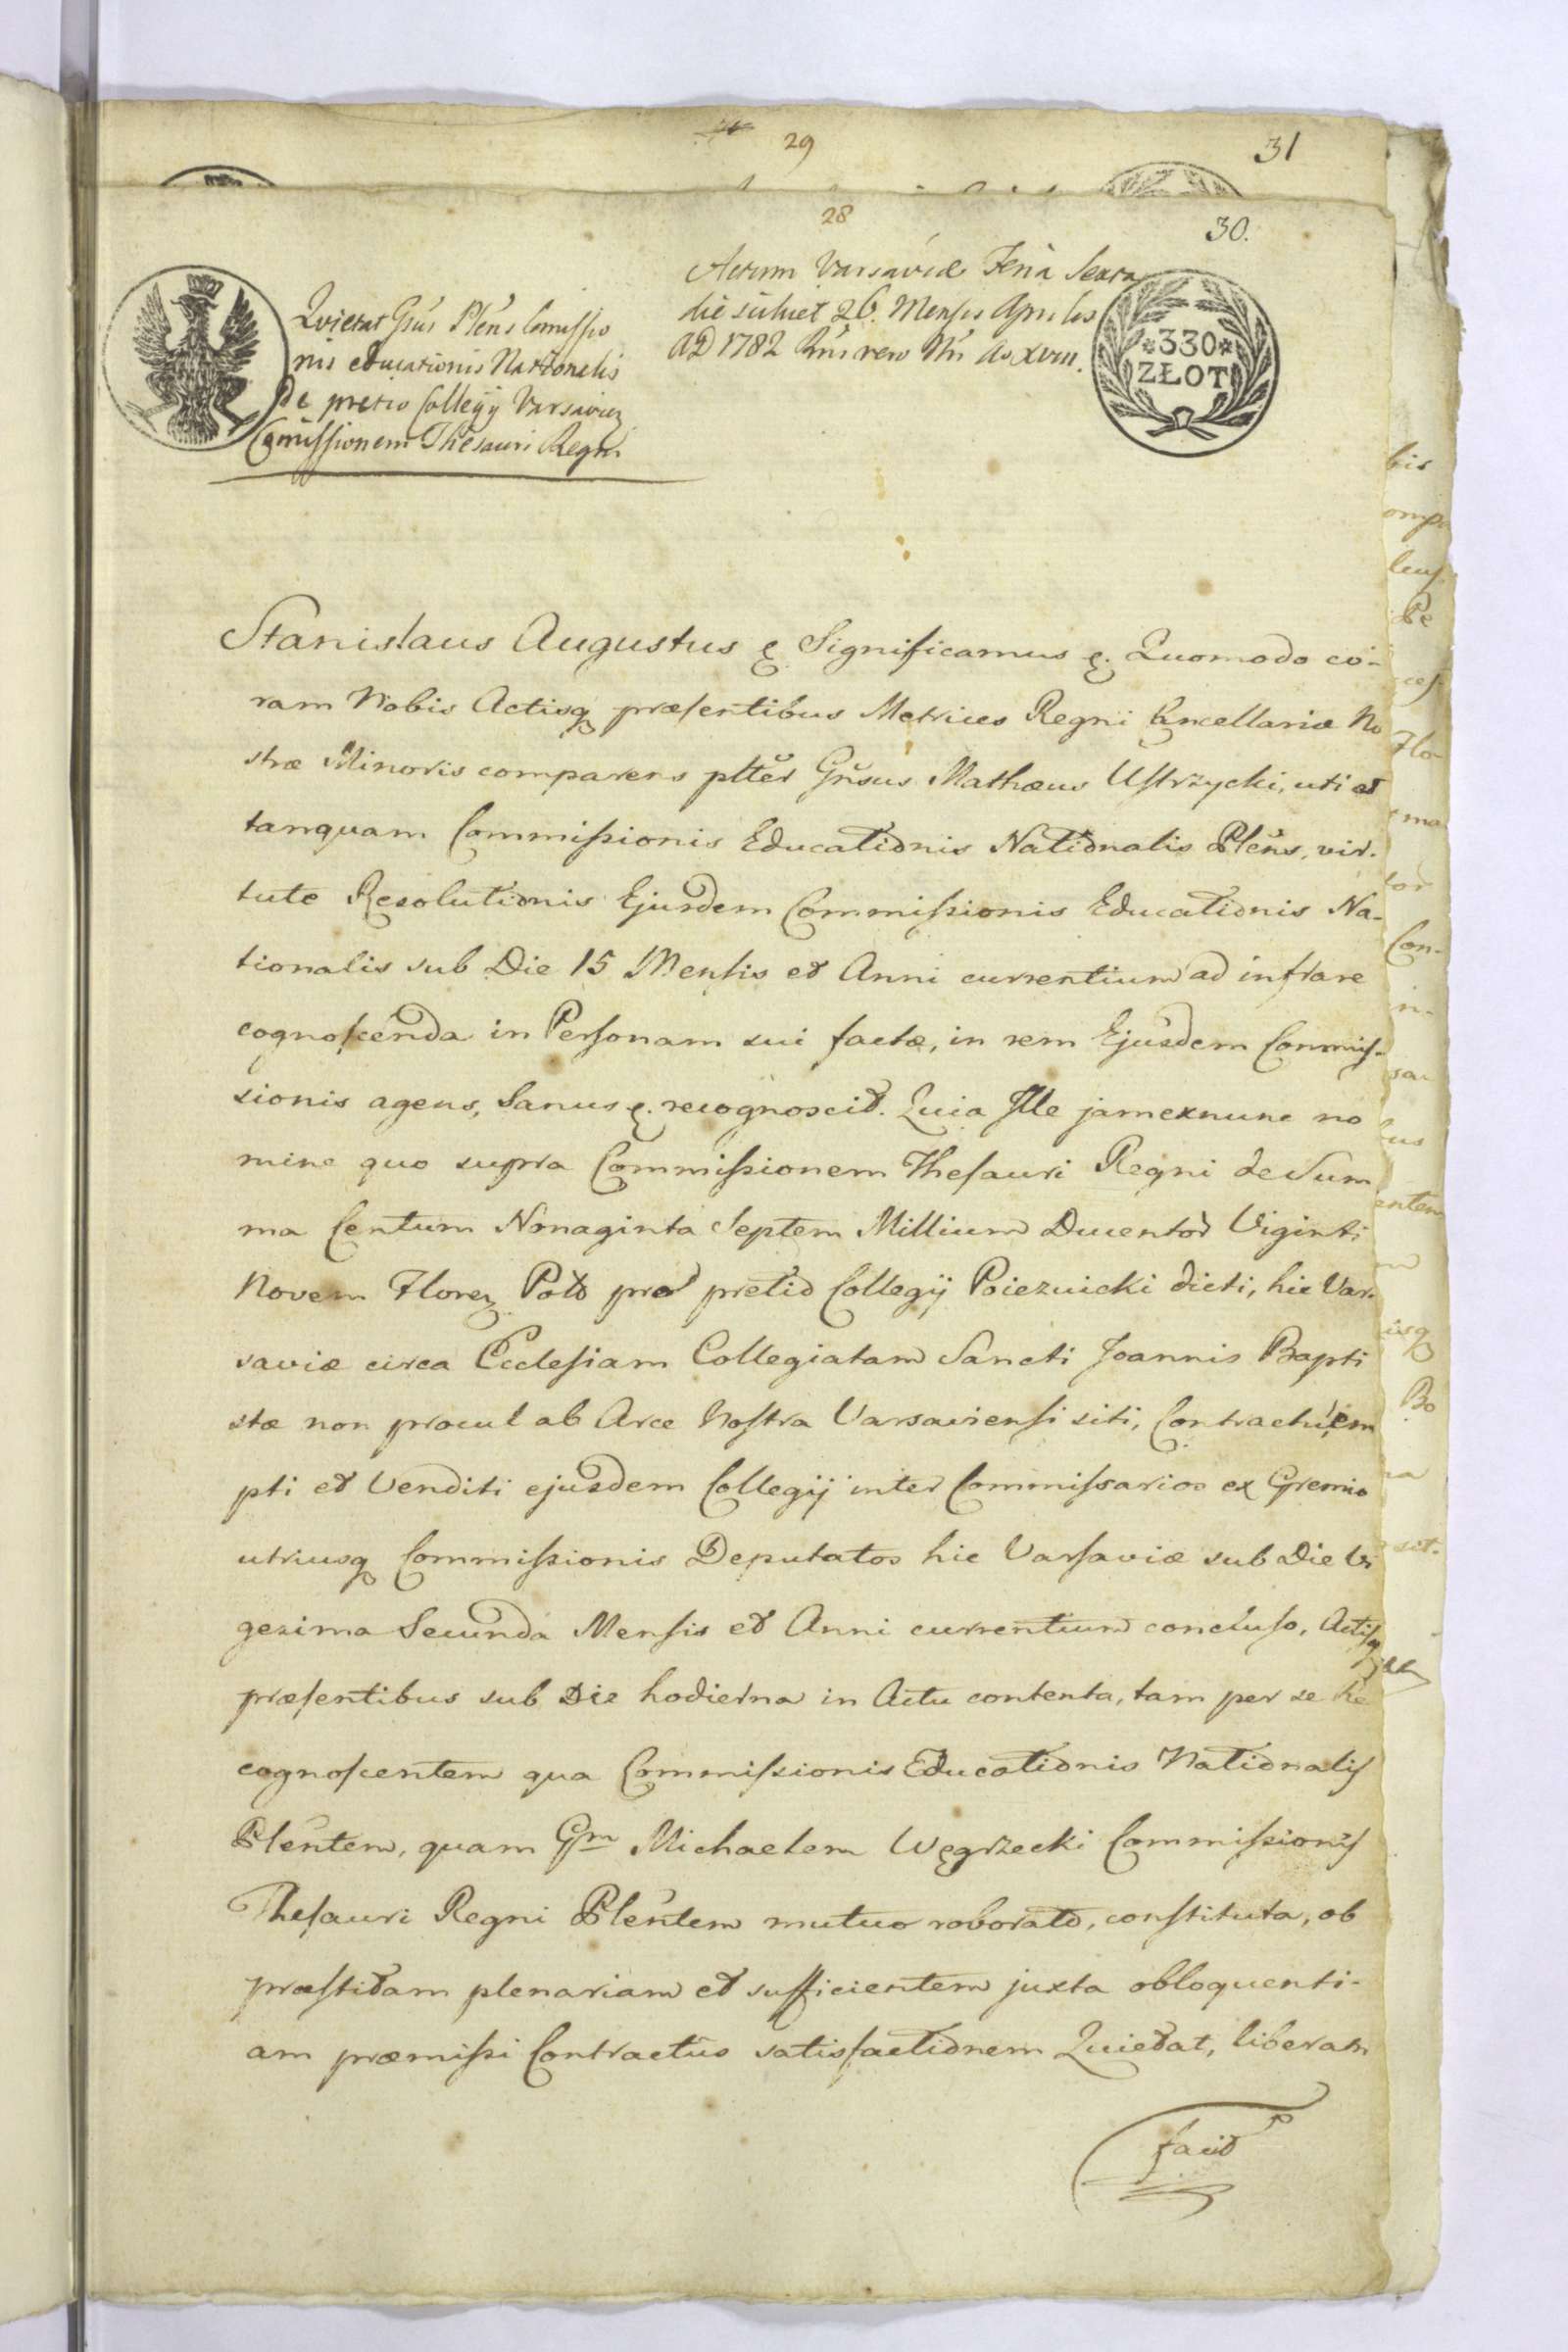 29
31
28
30.
Quietat Gsus Plens Commissio
nis educationis Nationalis
De pretio Collegij Varsavien
Commissionem Thesauri Regni
Actum Varsaviæ Feria Sexta
die scilicet 26. Mensis Aprilis
AD 1782 Rni vero Nri Ao XVIII.
*330*
ZŁOT
Stanislaus Augustus ę Significamus ę. Quomodo co-
ram Nobis Actisq præsentibus Metrices Regni Cancellariæ No
stræ Minoris comparens pltter Gnsus Mathæus Ustrzycki, uti et
tanquam Commissionis Educationis Nationalis Plens, vir-
tute Resolutionis Ejusdem Commissionis Educationis Na-
tionalis sub Die 15 Mensis et Anni currentium ad infrare
cognoscenda in Personam sui factæ, in rem Ejusdem Commis-
sionis agens, Sanus ę. recognoscit. Quia Ille jam exnunc no
mine quo supra Commissionem Thesauri Regni de Sum
ma Centum Nonaginta Septem Millium Ducentor Viginti
Novem Floren Pol pro pretio Collegij Poiezuicki dicti, hic Var-
saviæ circa Ecclesiam Collegiatam Sancti Joannis Bapti
stæ non procul ab Arce Nostra Varsaviensi siti, Contractu em
pti et Venditi ejusdem Collegij inter Commissarios ex Gremio
utriusq Commissionis Deputatos hic Varsaviæ sub Die Vi
gesima Secunda Mensis et Anni currentium concluso, Actisq
præsentibus sub Die hodierna in Actu contenta, tam per se Re
cognoscentem qua Commissionis Educationis Nationalis
Plentem, quam Gm Michaelem Węgrzecki Commissionis
Thesauri Regni Plentem mutuo roborato, constituta, ob
præstitam plenariam et sufficientem juxta obloquenti-
am præmissi Contractus satisfactionem Quietat, liberam
facit